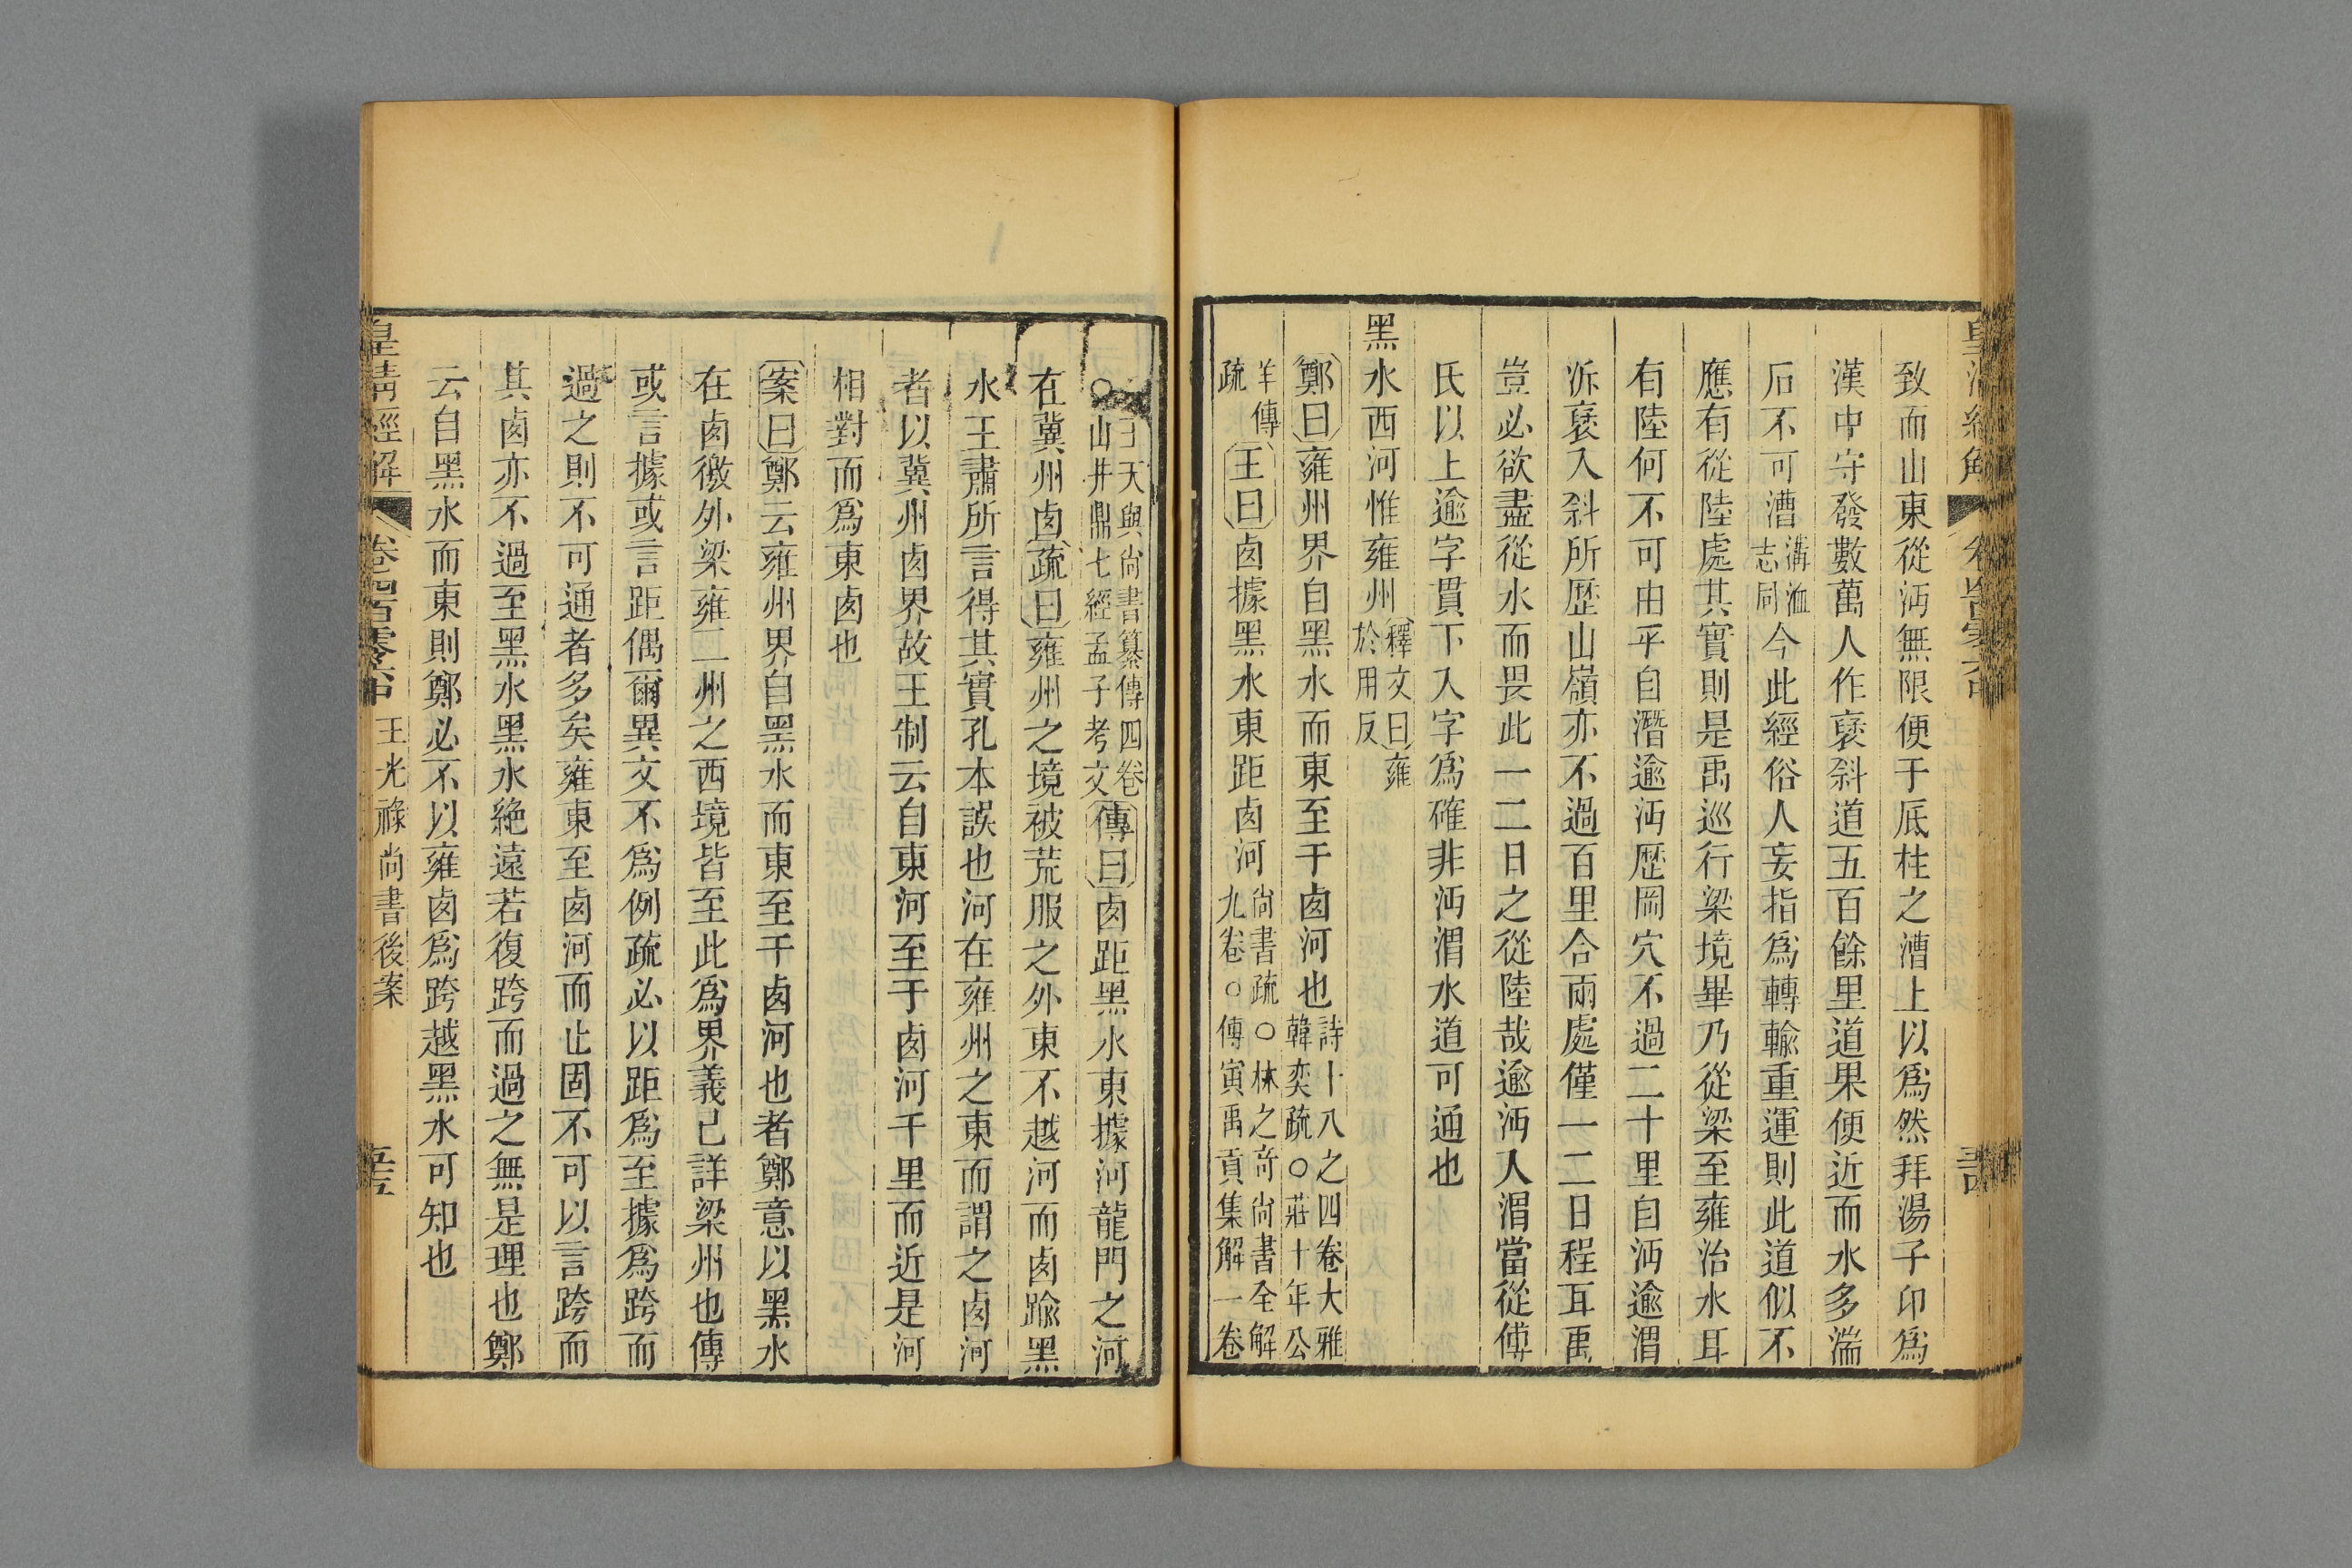 致而山東從沔無限便于底柱之漕上以爲然拜湯子卬爲
漢中守發數萬人作褒斜道五百餘里道果便近而水多湍
石不可漕溝洫志同今此經俗人妄指爲轉輸重運則此道似不
應有從陸處其實則是禹巡行梁境畢乃從梁至雍治水耳
有陸何不可由乎自潛逾沔歷岡穴不過二十里自沔逾渭
泝褒入斜所歷山嶺亦不過百里合兩處僅一二日程耳禹
豈必欲盡從水而畏此一二日之從陸哉逾沔入渭當從傅
氏以上逾字貫下入字爲確非沔渭水道可通也
黑水西河惟雍州釋文曰雍於用反
鄭曰雍州界自黑水而東至于卥河也詩十八之四卷大雅韓奕疏○莊十年公
羊傳疏王曰卥據黑水東距卥河尚書疏○林之奇尚書全解九卷○傅寅禹貢集解一卷
○王天與尚書纂傳四卷山井鼎七經孟子考文傳曰卥距黑水東據河龍門之河
在冀州卥疏曰雍州之境被荒服之外東不越河而卥踰黑
水王肅所言得其實孔本誤也河在雍州之東而謂之卥河
者以冀州卥界故王制云自東河至于卥河千里而近是河
相對而爲東卥也
案曰鄭云雍州界自黑水而東至于卥河也者鄭意以黑水
在卥徼外梁雍二州之西境皆至此爲界義已詳梁州也傳
或言據或言距偶爾異文不爲例疏必以距爲至據爲跨而
過之則不可通者多矣雍東至卥河而止固不可以言跨而
其卥亦不過至黑水黑水絶遠若復跨而過之無是理也鄭
云自黑水而東則鄭必不以雍卥爲跨越黑水可知也
皇清經解 卷四百零六中 王光祿尚書後案